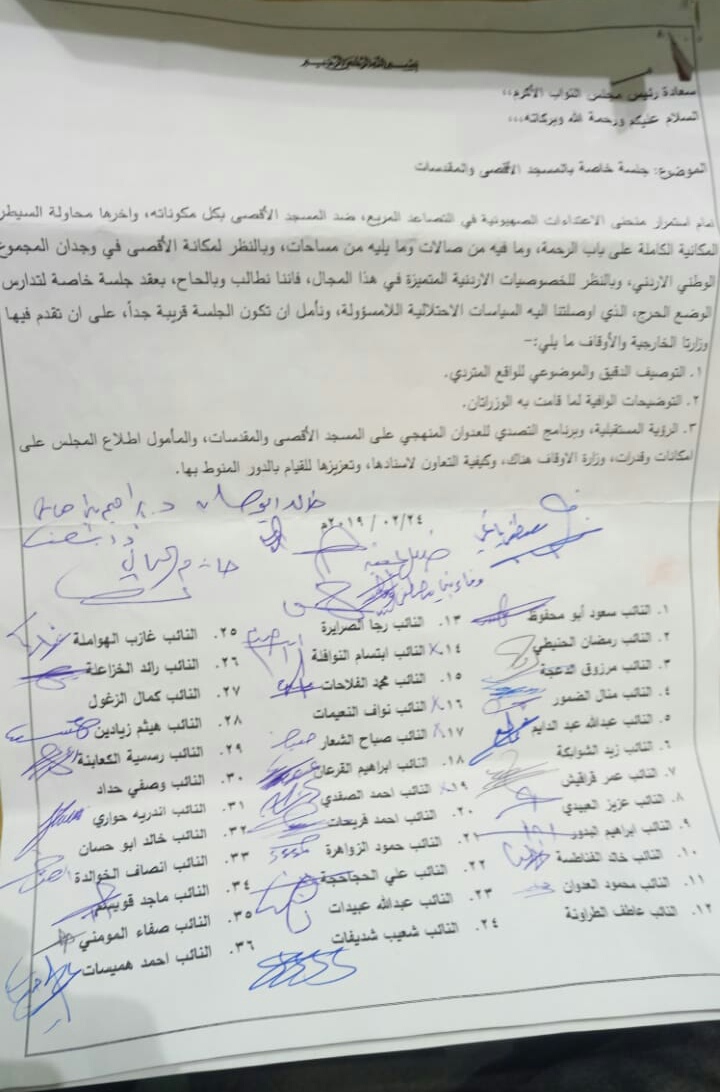 بسم الله الرحمن الرحيم
سعادة رئيس مجلس النواب الأكرم،،
السلام عليكم ورحمة الله وبركاته،،،
الموضوع: جلسة خاصة بالمسجد الأقصى والمقدسات
امام استمرار منحنى الاعتداءات الصهيونية في التصاعد المريع، ضد المسجد الأقصى بكل مكوناته، واخرها محاولة السيطر
المكانية الكاملة على باب الرحمة، وما فيه من صالات وما يليه من مساحات، وبالنظر لمكانة الأقصى في وجدان المجموع
الوطني الاردني، وبالنظر للخصوصيات الاردنية المتميزة في هذا المجال، فاننا نطالب وبالحاح، بعقد جلسة خاصة لتدارس
الوضع الحرج، الذي اوصلتنا اليه السياسات الاحتلالية اللامسؤولة، ونأمل ان تكون الجلسة قريبة جداً، على ان تقدم فيها
وزارتا الخارجية والأوقاف ما يلي:-
١. التوصيف الدقيق والموضوعي للواقع المتردي.
٢. التوضيحات الوافية لما قامت به الوزراتان.
٣. الرؤية المستقبلية، وبرنامج التصدي للعدوان المنهجي على المسجد الأقصى والمقدسات، والمأمول اطلاع المجلس على
امكانات وقدرات، وزارة الاوقاف هناك، وكيفية التعاون لاسنادها، وتعزيزها للقيام بالدور المنوط بها.
٢٠١٩/٠٢/٢٤م
١. النائب سعود أبو محفوظ
٢. النائب رمضان الحنيطي
٣. النائب مرزوق الدعجة
٤. النائب منال الضمور
٥. النائب عبدالله عبد الدايم
٦. النائب زيد الشوابكة
٧. النائب عمر قراقيش
٨. النائب عزيز العبيدي
٩. النائب ابراهيم البدور
١٠. النائب خالد الفناطسة
١١. النائب محمود العدوان
١٢. النائب عاطف الطراونة
١٣. النائب رجا الصرايرة
١٤. النائب ابتسام النوافلة
١٥. النائب محمد الفلاحات
١٦. النائب نواف النعيمات
١٧. النائب صباح الشعار
١٨. النائب ابراهيم القرعان
١٩. النائب احمد الصفدي
٢٠. النائب احمد فريحات
٢١. النائب حمود الزواهرة
٢٢. النائب علي الحجاحجة
٢٣. النائب عبدالله عبيدات
٢٤. النائب شعيب شديفات
٢٥. النائب غازب الهواملة
٢٦. النائب رائد الخزاعلة
٢٧. النائب كمال الزغول
٢٨. النائب هيثم زيادين
٢٩. النائب رسمية الكعابنة
٣٠. النائب وصفي حداد
٣١. النائب اندريه حواري
٣٢. النائب خالد ابو حسان
٣٣. النائب انصاف الخوالدة
٣٤. النائب ماجد قويسم
٣٥. النائب صفاء المومني
٣٦. النائب احمد هميسات